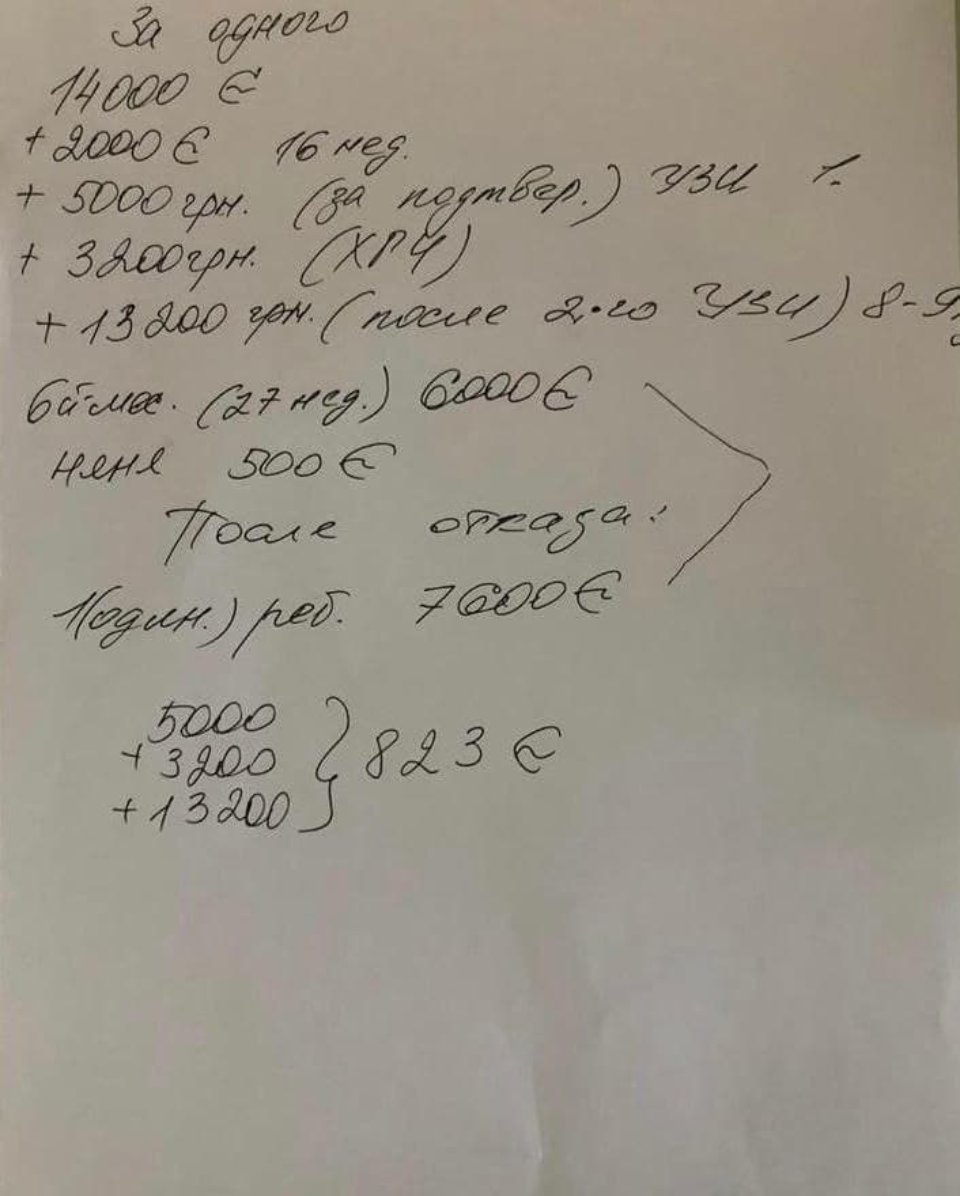 За одного
14000 €
+2000 € 16 нед.
+ 5000 грн. (за подтвер.) УЗИ 1.
+ 3200 грн. (ХГЧ)
+ 13200 грн. (после 2-го УЗИ) 8-9
6й мес. (27 нед.) 6000 €
няня 500 €
После отказа:
1(один.) реб. 7600 €
5000
+ 3200
+ 13200
} 823 €